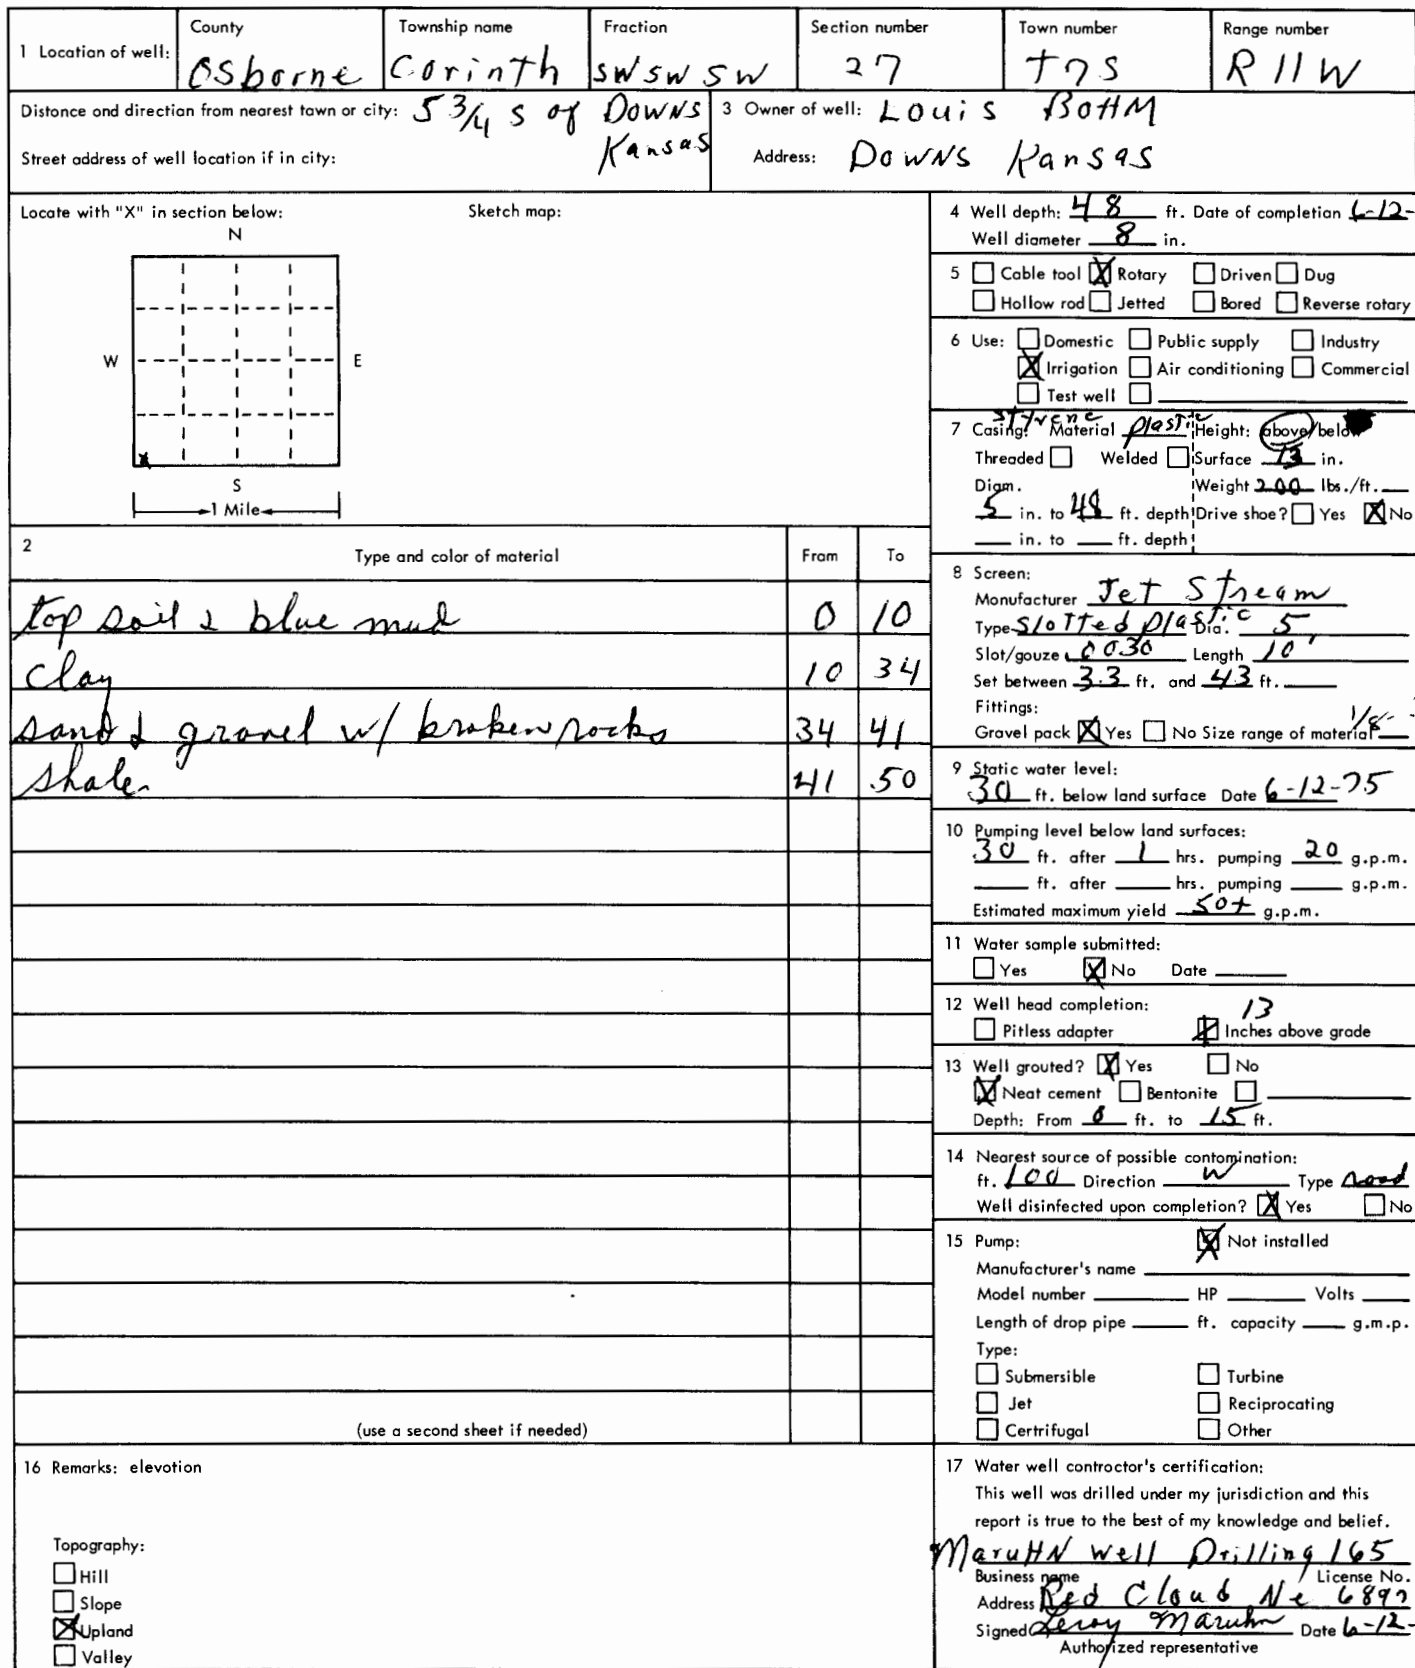 1 Location of well:
County
Osborne
Township name
Corinth
Fraction
SW SW SW
Section number
27
Town number
T7S
Range number
R11W
Distance and direction from nearest town or city: 5 3/4 S of Downs
Kansas
Street address of well location if in city:
3 Owner of well: Louis BOHM
Address: Downs Kansas
Locate with "X" in section below:
Sketch map:
N
W
E
X
S
1 Mile
2
Type and color of material
From
To
top soil & blue mud 0 10
clay 10 34
sand & gravel w/ broken rocks 34 41
shale 41 50
(use a second sheet if needed)
4 Well depth: 48 ft. Date of completion 6-12-
Well diameter 8 in.
5 Cable tool X Rotary Driven Dug
Hollow rod Jetted Bored Reverse rotary
6 Use: Domestic Public supply Industry
X Irrigation Air conditioning Commercial
Test well
styrene
7 Casing: Material plastic Height: above/below
Threaded Welded Surface 13 in.
Diam. Weight 200 lbs./ft.
5 in. to 48 ft. depth Drive shoe? Yes X No
in. to ft. depth
8 Screen:
Manufacturer Jet Stream
Type Slotted plastic Dia. 5
Slot/gouze .0030 Length 10'
Set between 33 ft. and 43 ft.
Fittings:
Gravel pack X Yes No Size range of material 1/8-
9 Static water level:
30 ft. below land surface Date 6-12-75
10 Pumping level below land surfaces:
30 ft. after 1 hrs. pumping 20 g.p.m.
ft. after hrs. pumping g.p.m.
Estimated maximum yield 50+ g.p.m.
11 Water sample submitted:
Yes X No Date
12 Well head completion: 13
Pitless adapter X Inches above grade
13 Well grouted? X Yes No
X Neat cement Bentonite
Depth: From 0 ft. to 15 ft.
14 Nearest source of possible contomination:
ft. 100 Direction W Type road
Well disinfected upon completion? X Yes No
15 Pump: X Not installed
Manufacturer's name
Model number HP Volts
Length of drop pipe ft. capacity g.m.p.
Type:
Submersible Turbine
Jet Reciprocating
Certrifugal Other
16 Remarks: elevotion
Topography:
Hill
Slope
X Upland
Valley
17 Water well controctor's certification:
This well was drilled under my jurisdiction and this
report is true to the best of my knowledge and belief.
MaruHN Well Drilling 165
Business name License No.
Address Red Cloud Ne 6897
Signed Leroy Maruhn Date 6-12-
Authorized representative